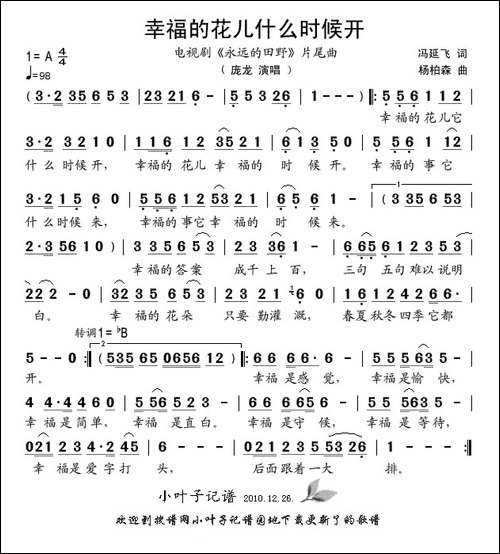 幸福的花儿什么时候开
1=A 4/4
电视剧《永远的田野》片尾曲
冯延飞 词
♩=98
（庞龙 演唱）
杨柏森 曲
(3·2 35 6 5 3 | 2 3 2 1 6 - | 5 5 2 3 2 | 1 - - -) ‖: 5 5 6 1 1 2 |
幸福的花儿它
3·2 3 2 1 0 | 1 1 6 1 3 2 1 6 | 5 6 2 3 2 | 1 - - - | 5 5 6 1 1 2 |
什么时候开， 幸福的花儿幸福的时候开。 幸福的事它
3·2 1 5 6 0 | 5 5 6 1 2 5 3 2 1 | 6·5 6 5 6 | 1 - - - | (3 3 5 6 5 3 |
什么时候来， 幸福的事它幸福的时候来。
2·3 5 6 1 0) | 3 3 5 6 5 3 | 2 3 3 6 1 - | 6 6 6 5 6 1 2 3 |
幸福的答案 成千上百， 三句五句难以说明
2 2 2 - 0 | 3 2 3 5 6 5 | 3 5 2 3 2 1 6 0 | 1 6 1 2 4 2 6 6 · |
白。 幸福的花朵 只要勤灌溉， 春夏秋冬四季它都
转调1=♭B
5 - - 0 :‖ (5 3 5 6 5 0 6 5 6 1 2) :‖ 6 6 6 6·6 | 5 5 5 6 3 5 |
开。 幸福是感觉， 幸福是愉快，
4 4·4 4 6 0 | 5 5 5 1 2 | 6 6 6 6 6 | 5 5 5 6 3 5 |
幸福是简单， 幸福是直白。 幸福是守候， 幸福是等待，
0 2 1 2 3 4·2 4 5 | 6 - - - | 0 2 1 2 3 5 5 3 2 6 | 1 - - - ‖
幸福是爱字打头， 后面跟着一大排。
小叶子记谱 2010.12.26.
欢迎到搜谱网小叶子记谱园地下载更新了的歌谱